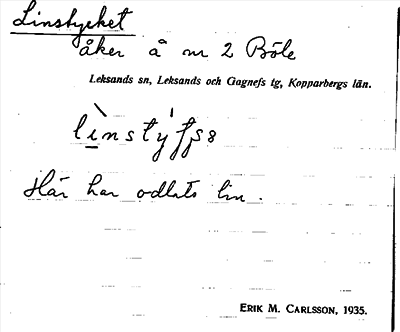 Linstycket
åker å nr 2 Böle
Leksands sn, Leksands och Gagnefs tg, Kopparbergs län.
Här har odlats lin.
ERIK M. CARLSSON, 1935.